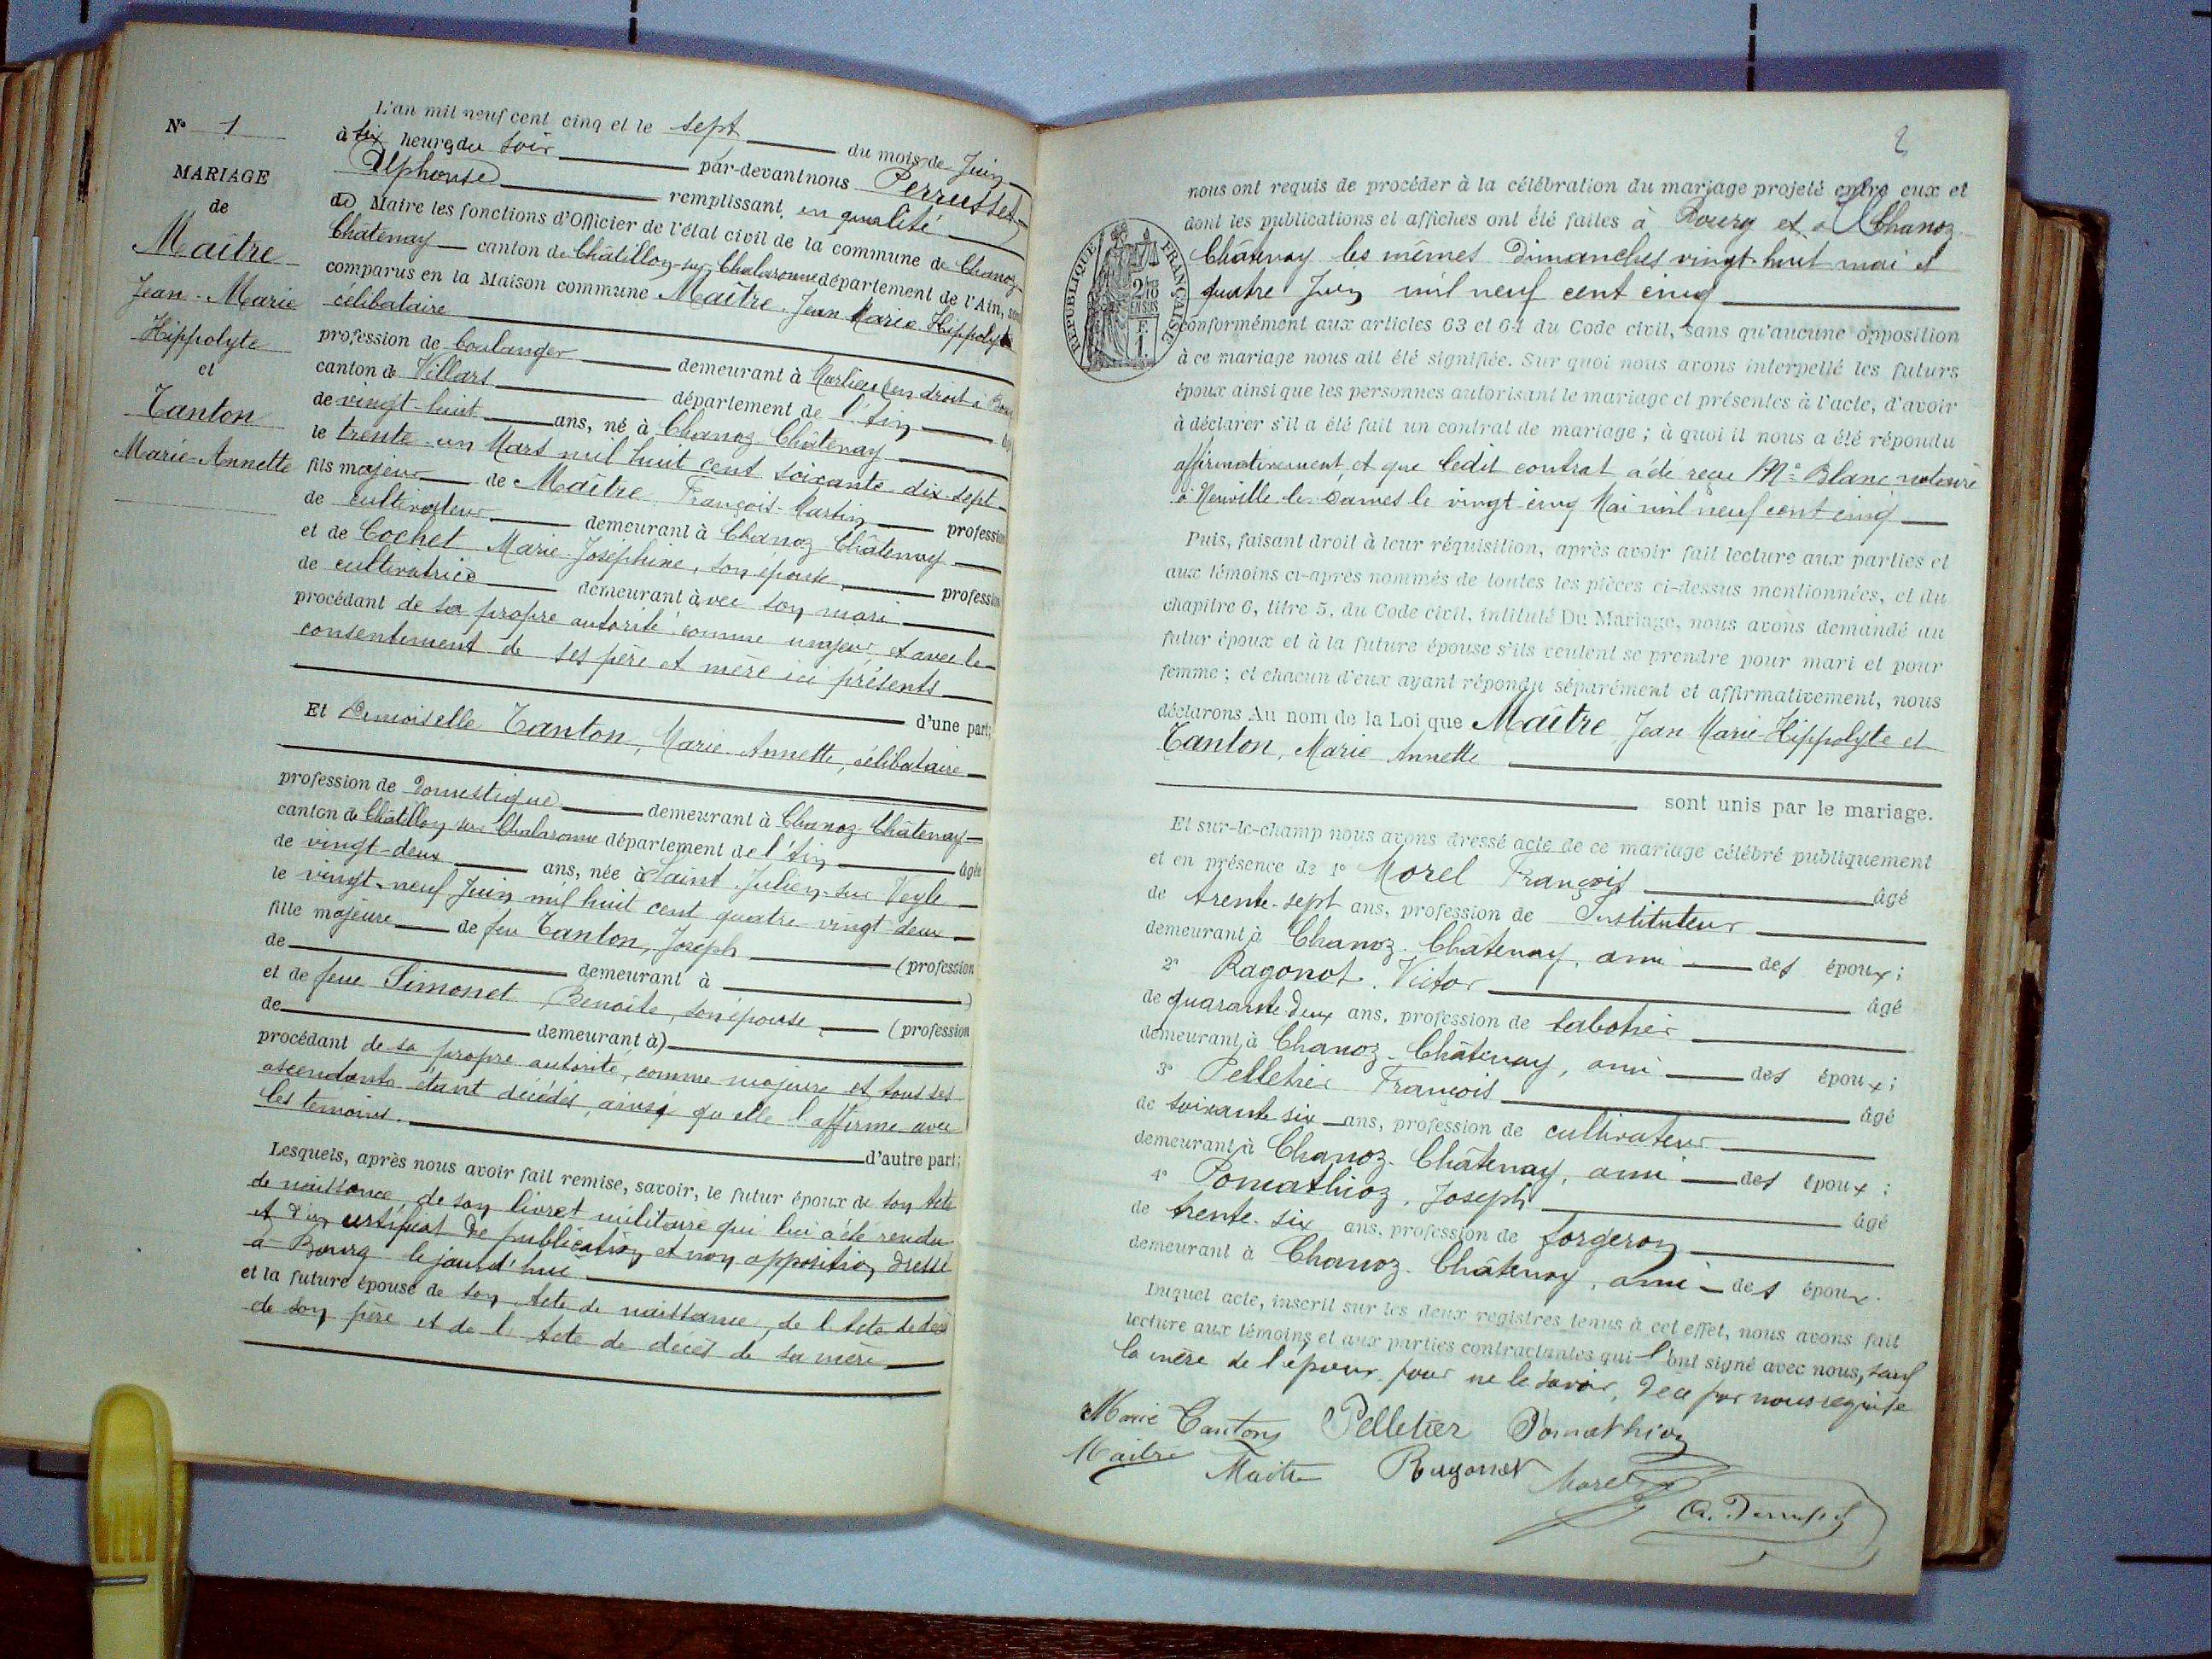 N° 1
MARIAGE
de
Maître
Jean-Marie
Hippolyte
et
Tanton
Marie-Annette
L'an mil neuf cent cinq et le sept du mois de Juin
à six heures du soir par-devant nous Perrusset
Alphonse remplissant, en qualité
de Maire les fonctions d'Officier de l'état civil de la commune de Chanoz
Châtenay canton de Châtillon-sur-Chalaronne département de l'Ain, sont
comparus en la Maison commune Maître Jean Marie Hippolyte
célibataire
profession de boulanger demeurant à Marlieux en droit à Bourg
canton de Villars département de l'Ain
de vingt-huit ans, né à Chanoz Châtenay
le trente-un Mars mil huit cent soixante-dix-sept
fils majeur de Maître François-Martin profession
de cultivateur demeurant à Chanoz Châtenay
et de Cochet Marie-Joséphine, son épouse profession
de cultivatrice demeurant avec son mari
procédant de sa propre autorité comme majeur et avec le
consentement de ses père et mère ici présents
d'une part;
Et Demoiselle Tanton, Marie-Annette, célibataire
profession de Domestique demeurant à Chanoz-Châtenay
canton de Châtillon sur Chalaronne département de l'Ain âgée
de vingt-deux ans, née à Saint Julien-sur Veyle
le vingt-neuf Juin mil huit cent quatre vingt-deux
fille majeure de feu Tanton, Joseph (profession
de demeurant à )
et de feue Simonet, Benoîte, son épouse (profession
de demeurant à)
procédant de sa propre autorité, comme majeure et tous ses
ascendants étant décédés, ainsi qu'elle l'affirme avec
les temoins.
d'autre part;
Lesquels, après nous avoir fait remise, savoir, le futur époux de son Acte
de naissance, de son livret militaire qui lui a été rendu
et d'un certificat de publication et non opposition dressé
à Bourg le jourd'hui
et la future épouse de son Acte de naissance, de l'Acte de décès
de son père et de l'Acte de décès de sa mère
2
RÉPUBLIQUE FRANÇAISE
2/10
EN SUS
F.
1.
nous ont requis de procéder à la célébration du mariage projeté entre eux et
dont les publications et affiches ont été faites à Bourg et à Chanoz
Châtenay les mêmes Dimanches vingt-huit mai et
quatre Juin mil neuf cent cinq
conformément aux articles 63 et 64 du Code civil, sans qu'aucune opposition
à ce mariage nous ait été signifiée. Sur quoi nous avons interpellé les futurs
époux ainsi que les personnes autorisant le mariage et présentes à l'acte, d'avoir
à déclarer s'il a été fait un contrat de mariage ; à quoi il nous a été répondu
affirmativement, et que ledit contrat a été reçu Me Blanc notaire
à Neuville les Dames le vingt-cinq Mai mil neuf cent cinq
Puis, faisant droit à leur réquisition, après avoir fait lecture aux parties et
aux témoins ci-après nommés de toutes les pièces ci-dessus mentionnées, et du
chapitre 6, titre 5, du Code civil, intitulé Du Mariage, nous avons demandé au
futur époux et à la future épouse s'ils veulent se prendre pour mari et pour
femme ; et chacun d'eux ayant répondu séparément et affirmativement, nous
déclarons Au nom de la Loi que Maître Jean Marie-Hippolyte et
Tanton, Marie Annette
sont unis par le mariage.
Et sur-le-champ nous avons dressé acte de ce mariage célébré publiquement
et en présence de 1° Morel François âgé
de trente-sept ans, profession de Instituteur
demeurant à Chanoz-Châtenay, ami des époux ;
2° Ragonot, Victor âgé
de quarante-deux ans, profession de sabotier
demeurant à Chanoz-Châtenay, ami des époux ;
3° Pelletier François âgé
de soixante six ans, profession de cultivateur
demeurant à Chanoz-Châtenay, ami des époux ;
4° Pomathioz, Joseph âgé
de trente-six ans, profession de forgeron
demeurant à Chanoz-Châtenay, ami des époux.
Duquel acte, inscrit sur les deux registres tenus à cet effet, nous avons fait
lecture aux témoins et aux parties contractantes qui l'ont signé avec nous, sauf
la mère de l'époux pour ne le savoir, de ce par nous requise
Marie Tanton Pelletier Pomathioz
Maître Maitre Ragonot Morel
A. Perrusset